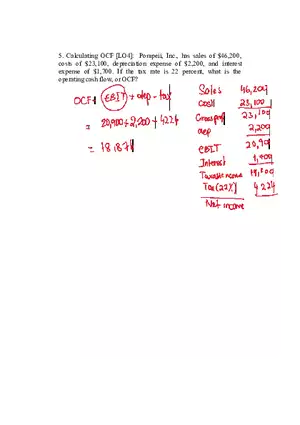 5. Calculating OCF [LO4]: Pompeii, Inc., has sales of $46,200,
costs of $23,100, depreciation expense of $2,200, and interest
expense of $1,700. If the tax rate is 22 percent, what is the
operating cash flow, or OCF?
OCF = EBIT + dep - tax
= 20,900 + 2,200 + 4224
= 18,876
Sales 46,200
Cost 23,100
Gross profit 23,100
dep 2,200
EBIT 20,90
Interest
Taxable income
Tax (22%) 4224
Net income